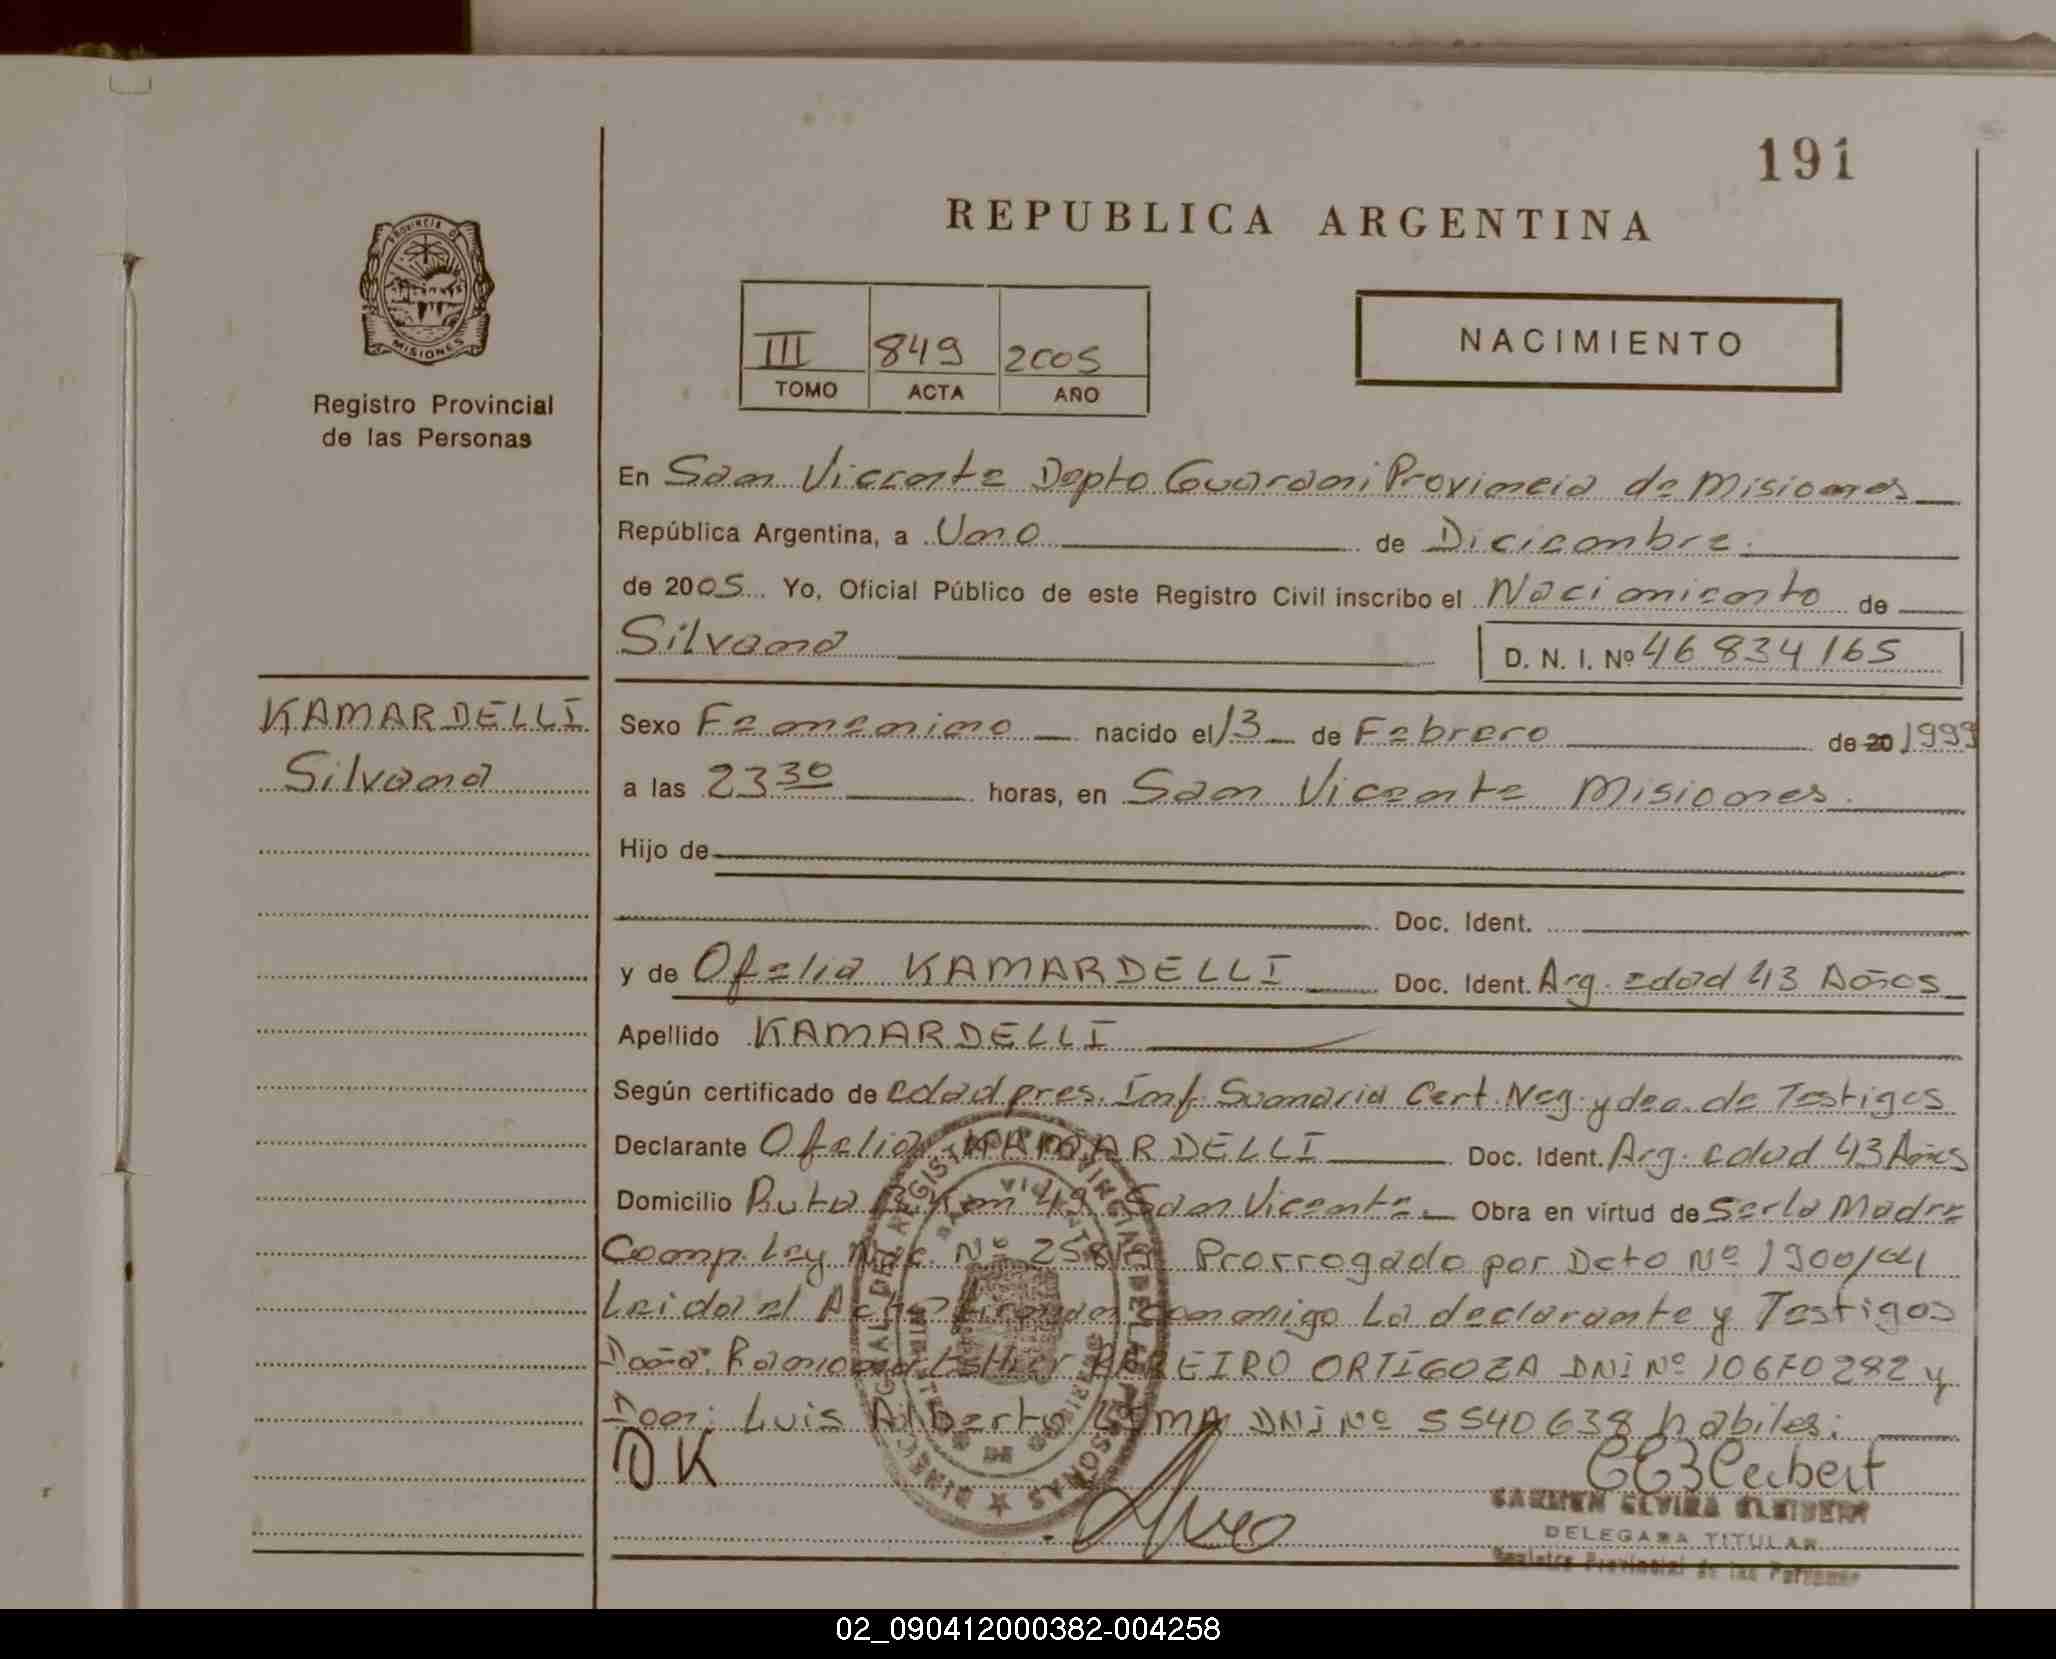 191
REPUBLICA ARGENTINA
PROVINCIA DE
MISIONES
Registro Provincial
de las Personas
III 849 2005
TOMO ACTA AÑO
NACIMIENTO
En San Vicente Depto Guarani Provincia de Misiones
República Argentina, a Uno de Diciembre.
de 2005 Yo, Oficial Público de este Registro Civil inscribo el Nacimiento de
Silvana D. N. I. Nº 46 834 165
KAMARDELLI
Silvana
Sexo Femenino nacido el 13 de Febrero de 20 1999
a las 23 30 horas, en San Vicente Misiones.
Hijo de
Doc. Ident.
y de Ofelia KAMARDELLI Doc. Ident. Arg. edad 43 Años
Apellido KAMARDELLI
Según certificado de edad pres. Inf. Sumaria Cert. Neg. y dec. de Testigos
Declarante Ofelia KAMARDELLI Doc. Ident. Arg. edad 43 Años
Domicilio Ruta Km 49 San Vicente Obra en virtud de Ser la Madre
Comp. Ley Nac. Nº 25819 Prorrogado por Dcto Nº 1900/04
Leida el Acta Firman conmigo La declarante y Testigos
Doña: Ramona Esther ORTIGOZA DNI Nº 10670282 y
Don: Luis Alberto DNI Nº 5540638 habiles:
OK
CARMEN ELVIRA
DELEGADA TITULAR
Registro Provincial de las Personas
02_090412000382-004258